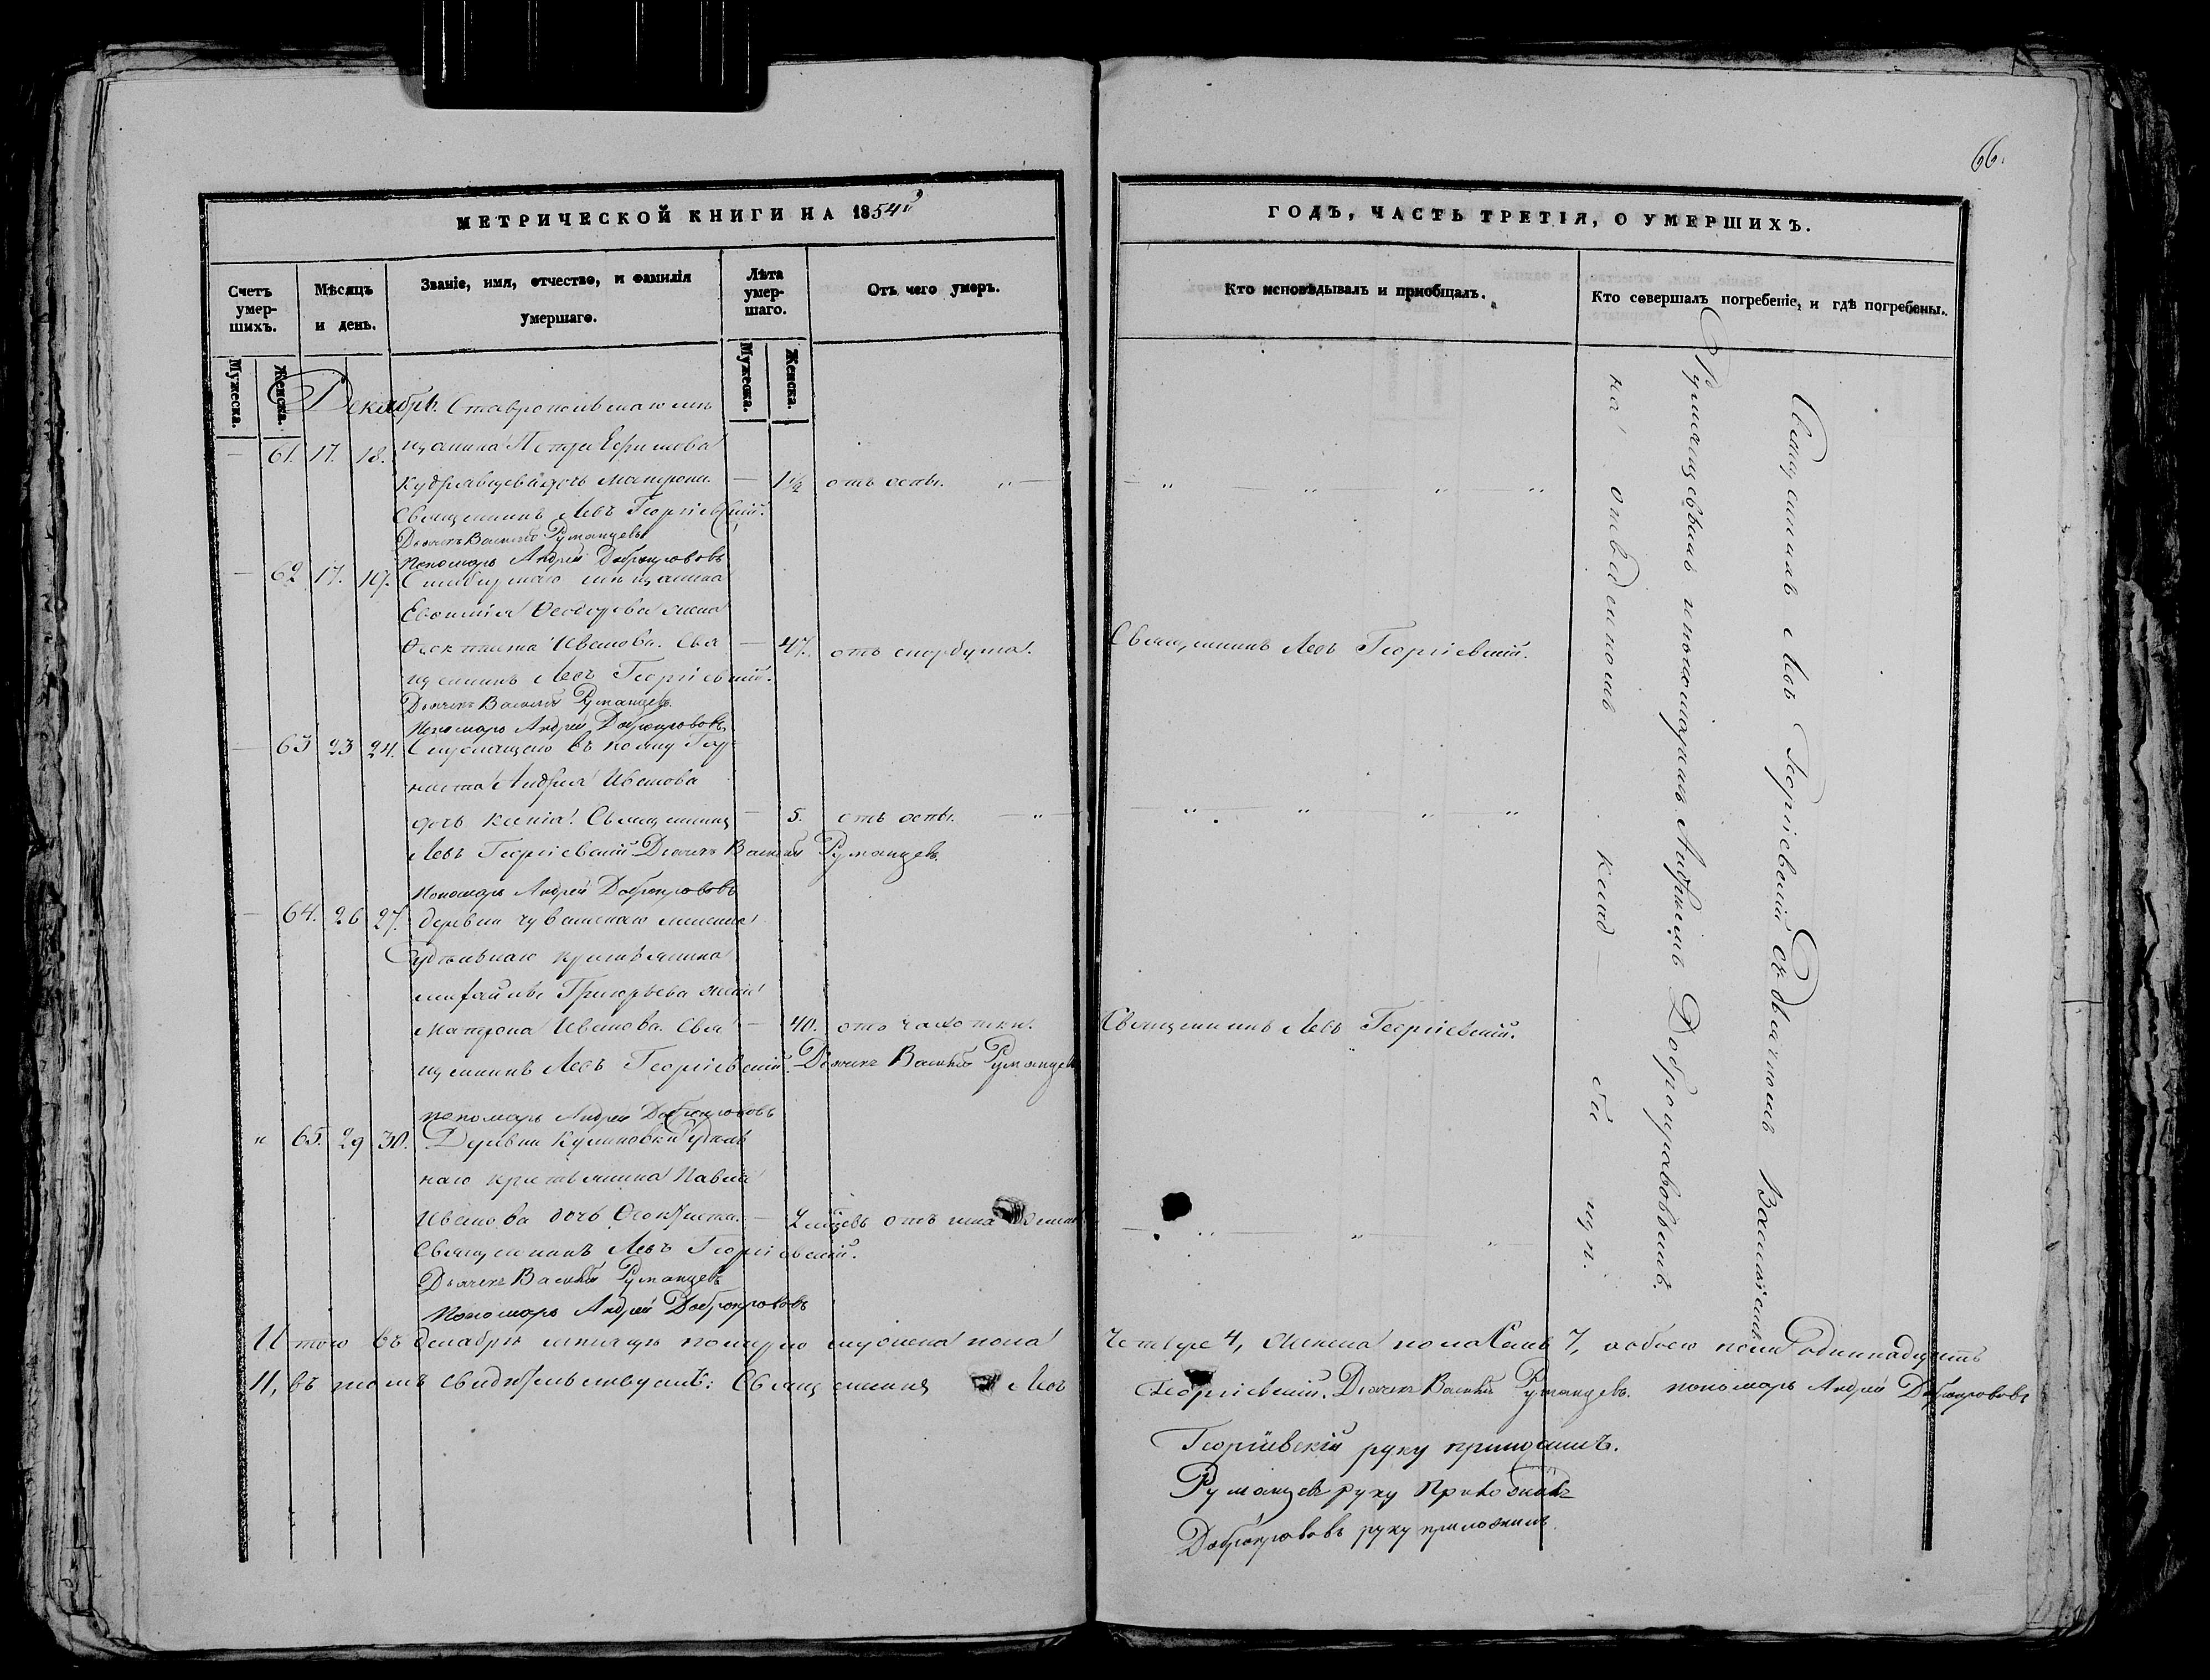 66.
МЕТРИЧЕСКОЙ КНИГИ НА 1854й
Счетъ умер-
шихъ.
Мѣсяцъ
и день.
Званіе, имя, отчество, и фамилія
умершаго.
Лѣта
умер-
шаго.
Отъ чего умеръ.
Мужеска.
Женска.
Мужеска.
Женска.
Декабрь. Ставропольскаго мѣ
— 61. 17. 18. щанина Петра Ефимова
Кудрявцева дочь Матрона. — 1½ отъ оспы. „ —
Священникъ Левъ Георгіевскій.
Дьячекъ Василій Румянцевъ
Пономарь Андрей Доброправовъ
— 62 17. 19. мѣщанина
Евфимія Ѳеодорова жена
Ѳеоктиста Иванова. Свя — 47. отъ скорбута.
щенникъ Левъ Георгіевскій.
Дьячекъ Василій Румянцевъ.
Пономарь Андрей Доброправовъ
— 63 23 24.
Андрея Иванова
дочь Ксенія. Священникъ — 5. отъ оспы. — „ —
Левъ Георгіевскій Дьячекъ Василій Румянцевъ.
Пономарь Андрей Доброправовъ
— 64. 26 27. деревни
Удѣльнаго крестьянина
Михаила Григорьева жена
Матрона Иванова. Свя — 40. отъ чахотки.
щенникъ Левъ Георгіевскій. Дьячекъ Василій Румянцевъ
пономарь Андрей Доброправовъ
„ 65. 29 30. Деревни Куликовки Удѣль
наго крестьянина Павла
Иванова дочь Ѳеоктиста. —
Священникъ Левъ Георгіевскій.
Дьячекъ Василій Румянцевъ
Пономарь Андрей Доброправовъ
Итого въ декабрѣ мѣсяцѣ померло мужеска пола
11, въ томъ свидѣтельствуемъ: Священникъ Левъ
ГОДЪ, ЧАСТЬ ТРЕТІЯ, О УМЕРШИХЪ.
Кто исповѣдывалъ и пріобщалъ.
Кто совершалъ погребеніе, и гдѣ погребены.
— „ — „ — „ — „
Священникъ Левъ Георгіевскій.
— „ — „ — „ — „
Священникъ Левъ Георгіевскій.
— „ — „ — „
Священникъ Левъ Георгіевскій съ дьячкомъ Василіемъ
Румянцевымъ и пономаремъ Андреемъ Доброправовымъ
на отведенномъ кладбищѣ.
четыре 4, женска пола семь 7, а обоего пола одиннадцать
Георгіевскій. Дьячекъ Василій Румянцевъ. пономарь Андрей Доброправовъ
Георгіевскій руку приложилъ.
Румянцевъ руку приложилъ
Доброправовъ руку приложилъ.